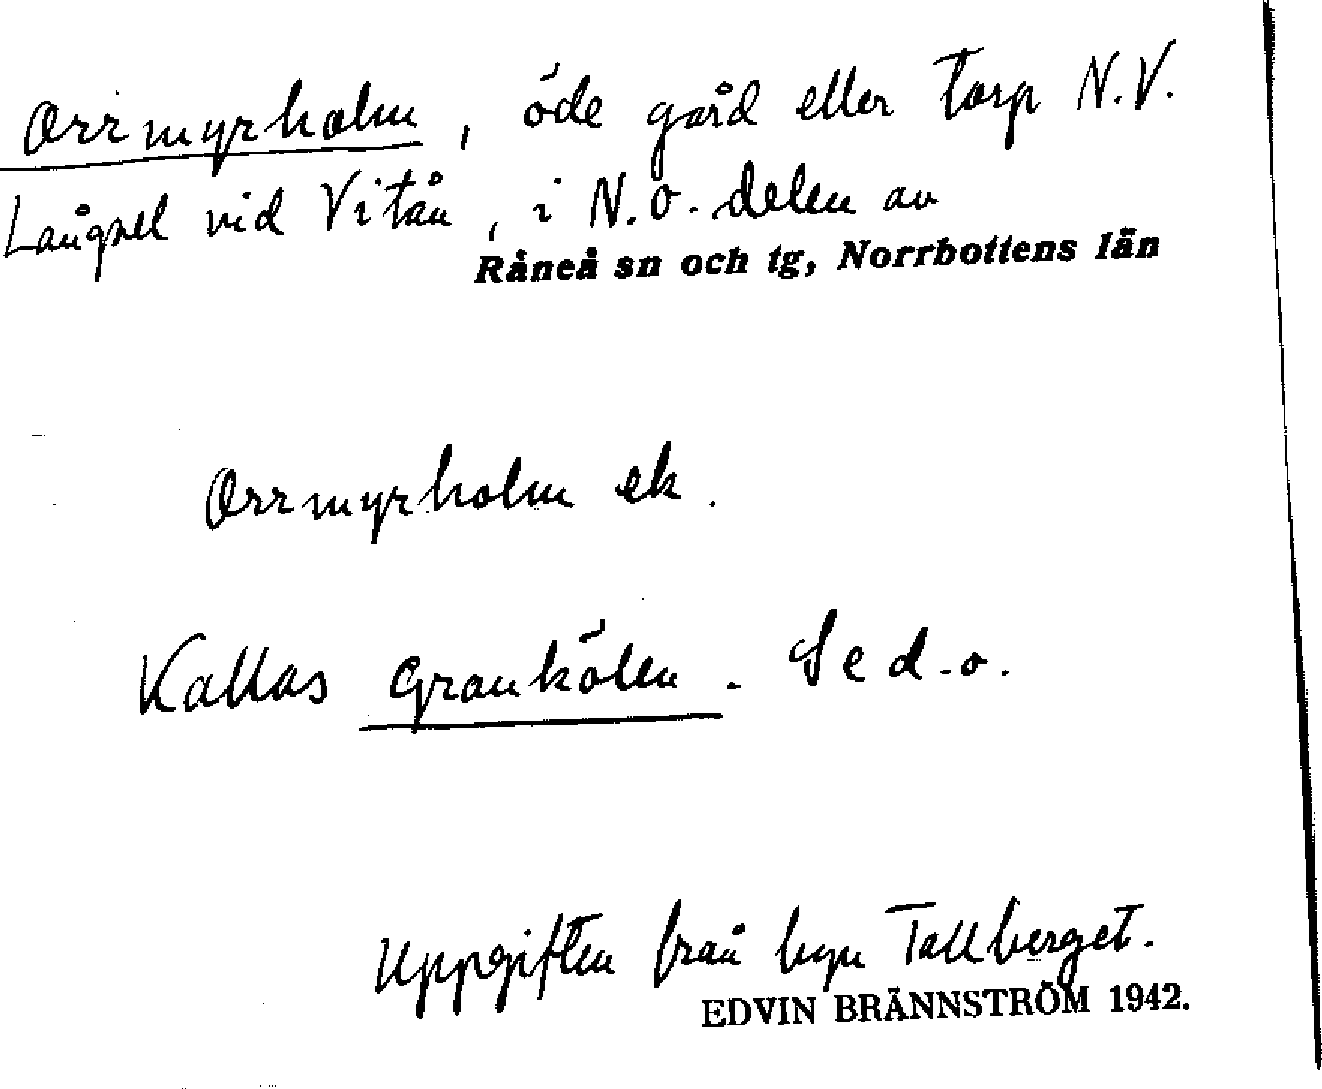 Orrmyrholm, öde gård eller torp N.V.
Långsel vid Vitån, i N.O. delen av
Råneå sn och tg, Norrbottens län
Orrmyrholm ek.
Kallas Grankölen. Se d.o.
Uppgiften från byn Tallberget.
EDVIN BRÄNNSTRÖM 1942.